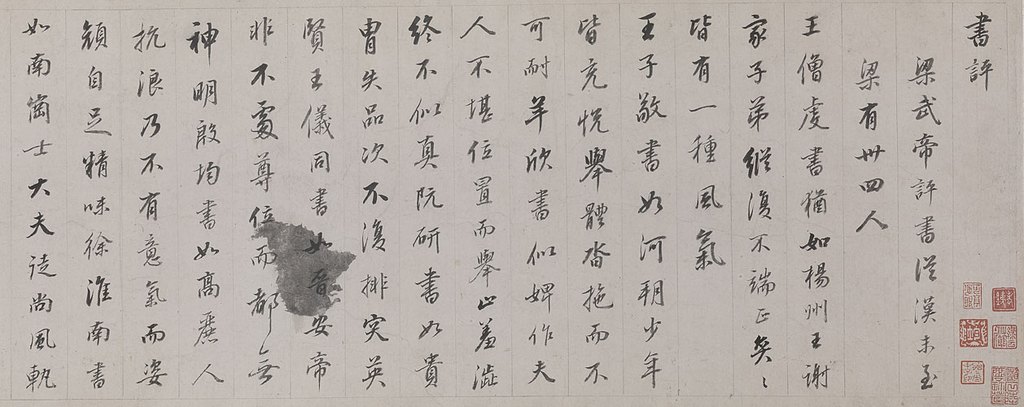 書評
梁武帝評書從漢末至
梁有卅四人
王僧虔書猶如楊州王謝
家子弟縱復不端正奕〻
皆有一種風氣
王子敬書如河朔少年
皆充悅舉體沓拖而不
可耐羊欣書似婢作夫
人不堪位置而舉止羞澁
終不似真阮研書如貴
胄失品次不復排突英
賢王儀同書如晉安帝
非不處尊位而都無
神明殷均書如高麗人
抗浪乃不有意氣而姿
顏自足精味徐淮南書
如南崗士大夫徒尚風軌